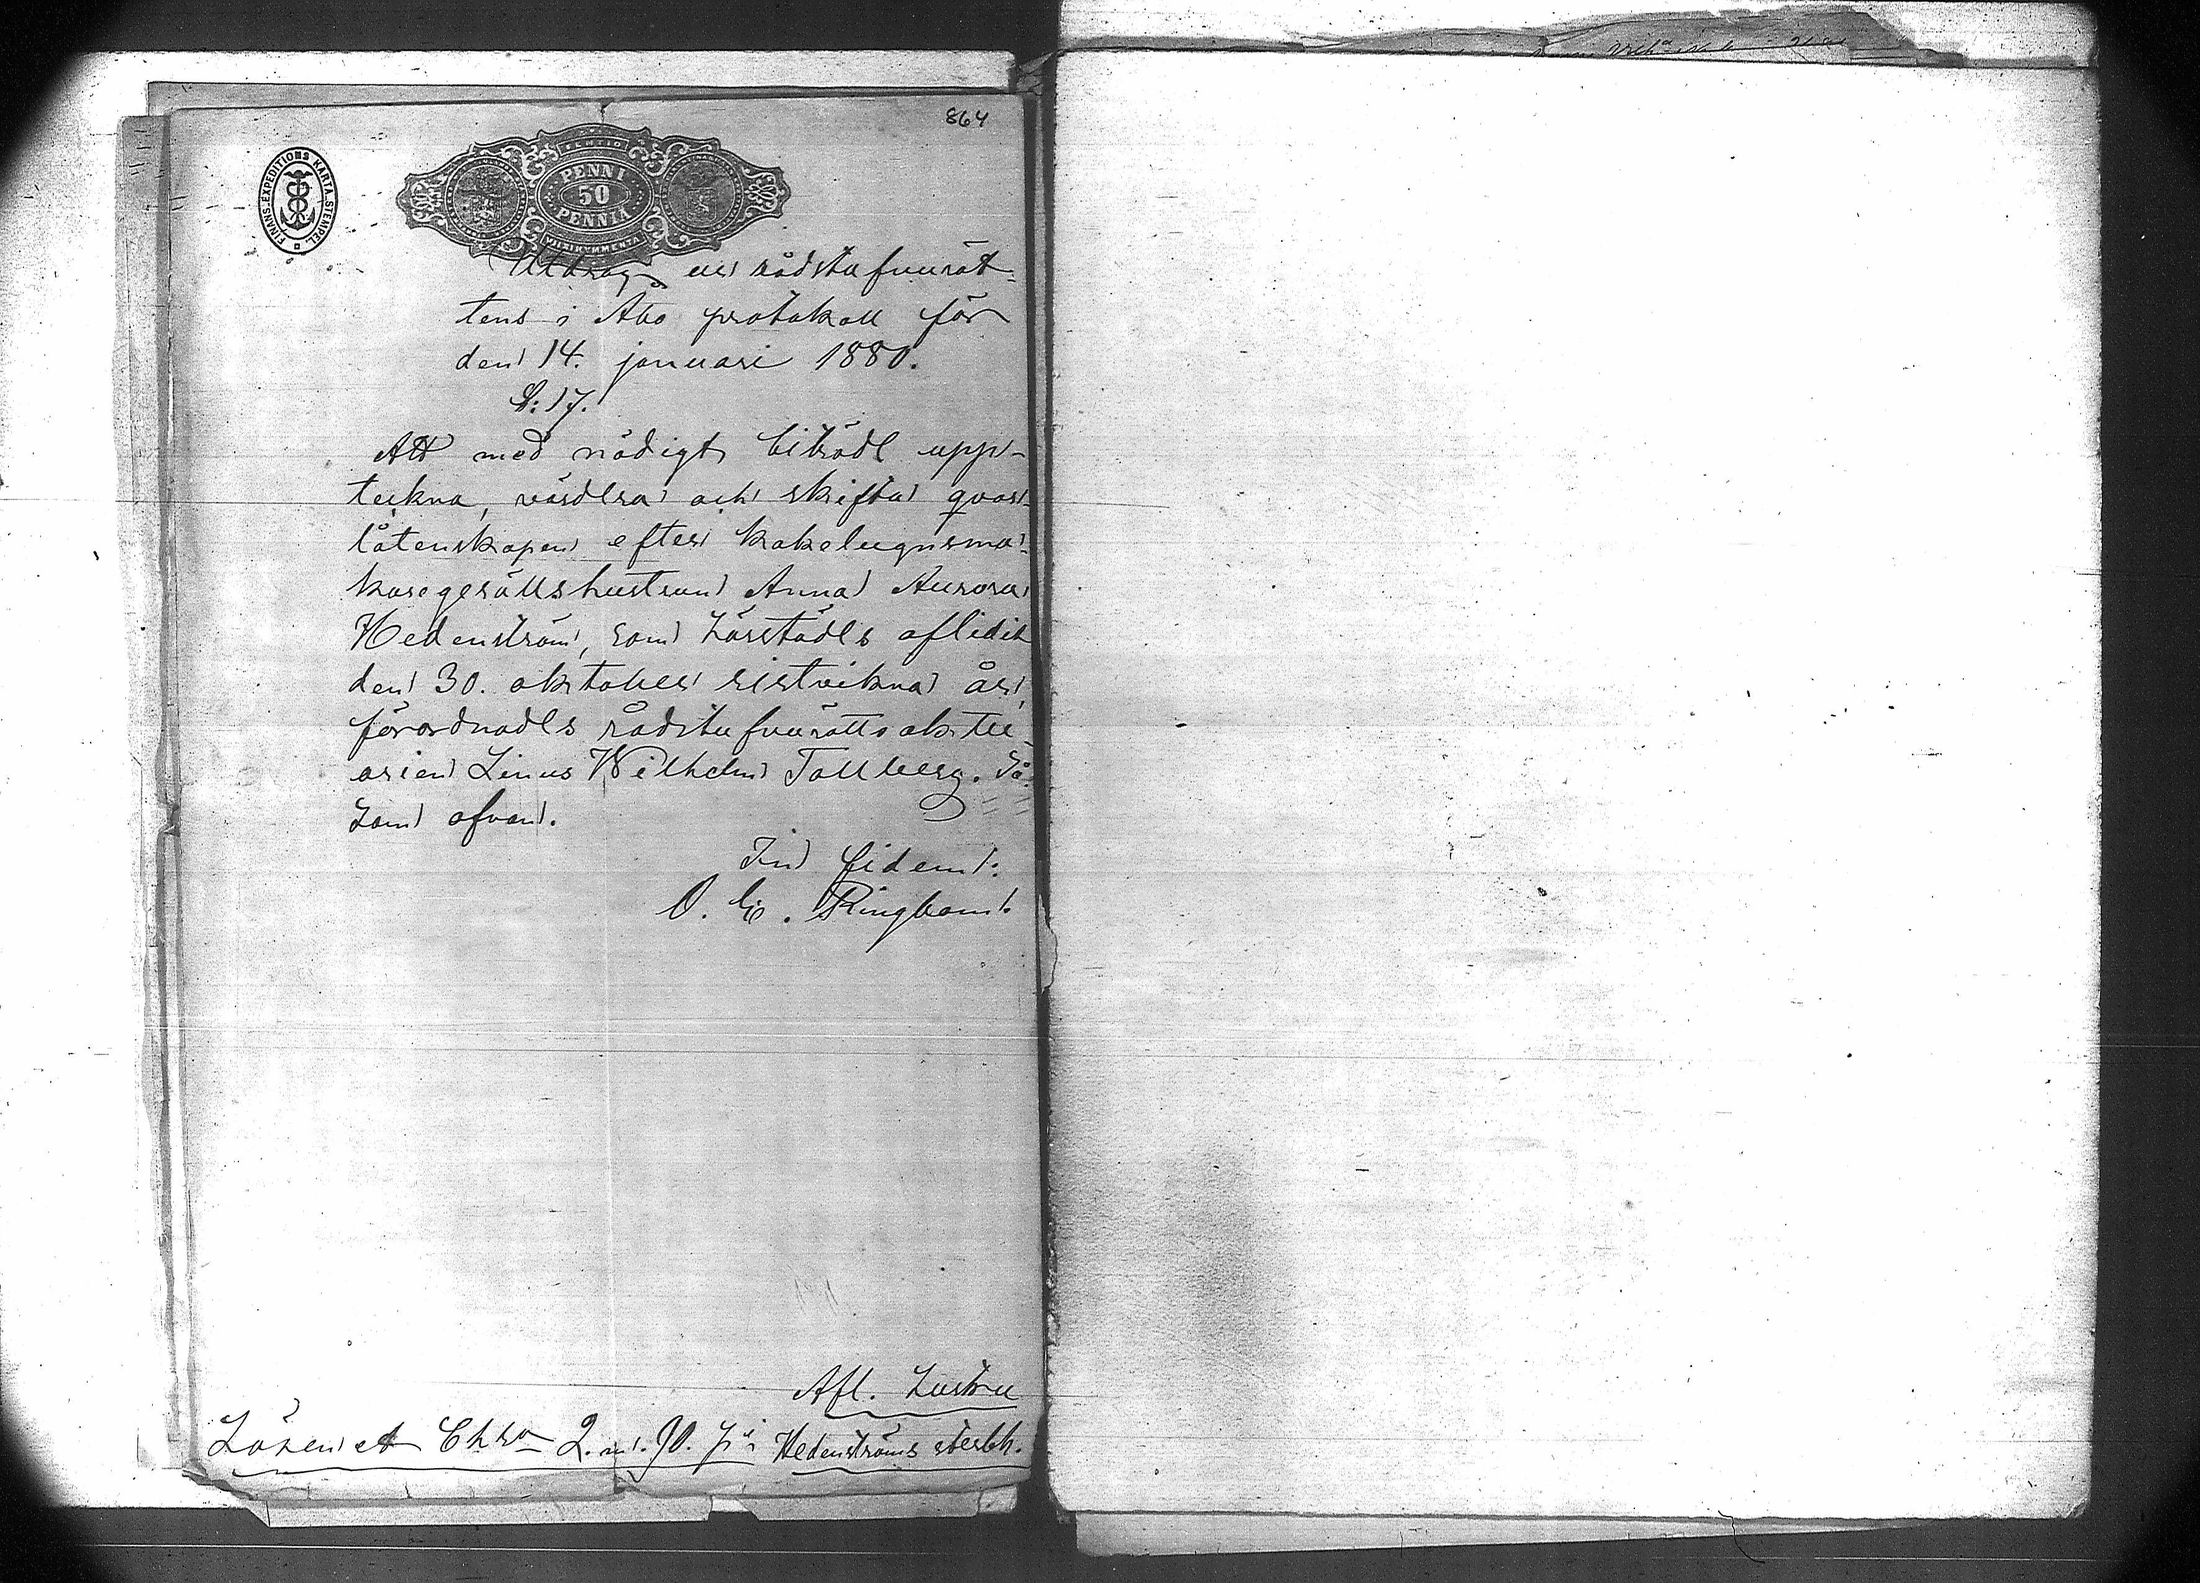 864
FINANS-EXPEDITIONS KARTA STEMPEL.
PENNI
50
PENNIÄ
VIISIKYMMENTÄ
Utdrag ur rådstufvurät-
tens i Åbo protokoll för
den 14. januari 1880.
§: 17.
Att med nödigt biträde upp-
teckna, värdera och skifta qvar-
låtenskapen efter kakelugnsma-
karegesällshustrun Anna Aurora
Hedenström, som härstädes aflidit
den 30. oktober sistvikna år,
förordnades rådstufvurätts aktu-
arien Linus Wilhelm Tallberg. Så-
som ofvan.
In fidem:
O. E. Ringbom.
Afl. hustru
Lösen et Chta 2. m. 90. p:i Hedenströms sterbh.